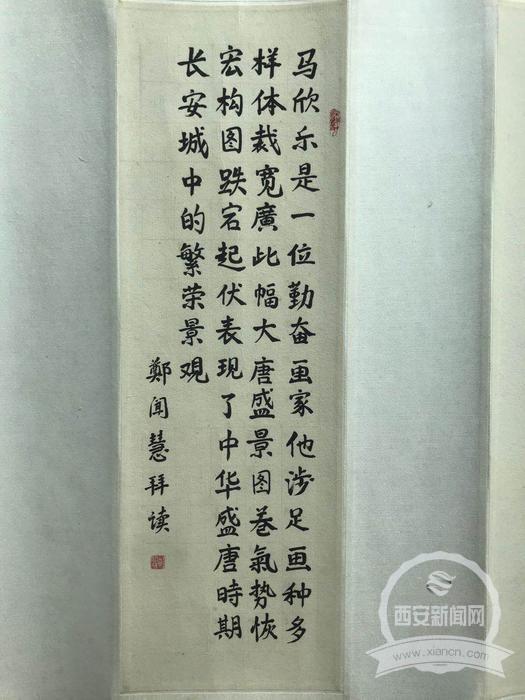 马欣乐是一位勤奋画家他涉足画种多
样体裁宽廣此幅大唐盛景图卷氣势恢
宏构图跌宕起伏表现了中华盛唐時期
长安城中的繁荣景观
鄭闻慧拜读
西安新闻网
www.xiancn.com